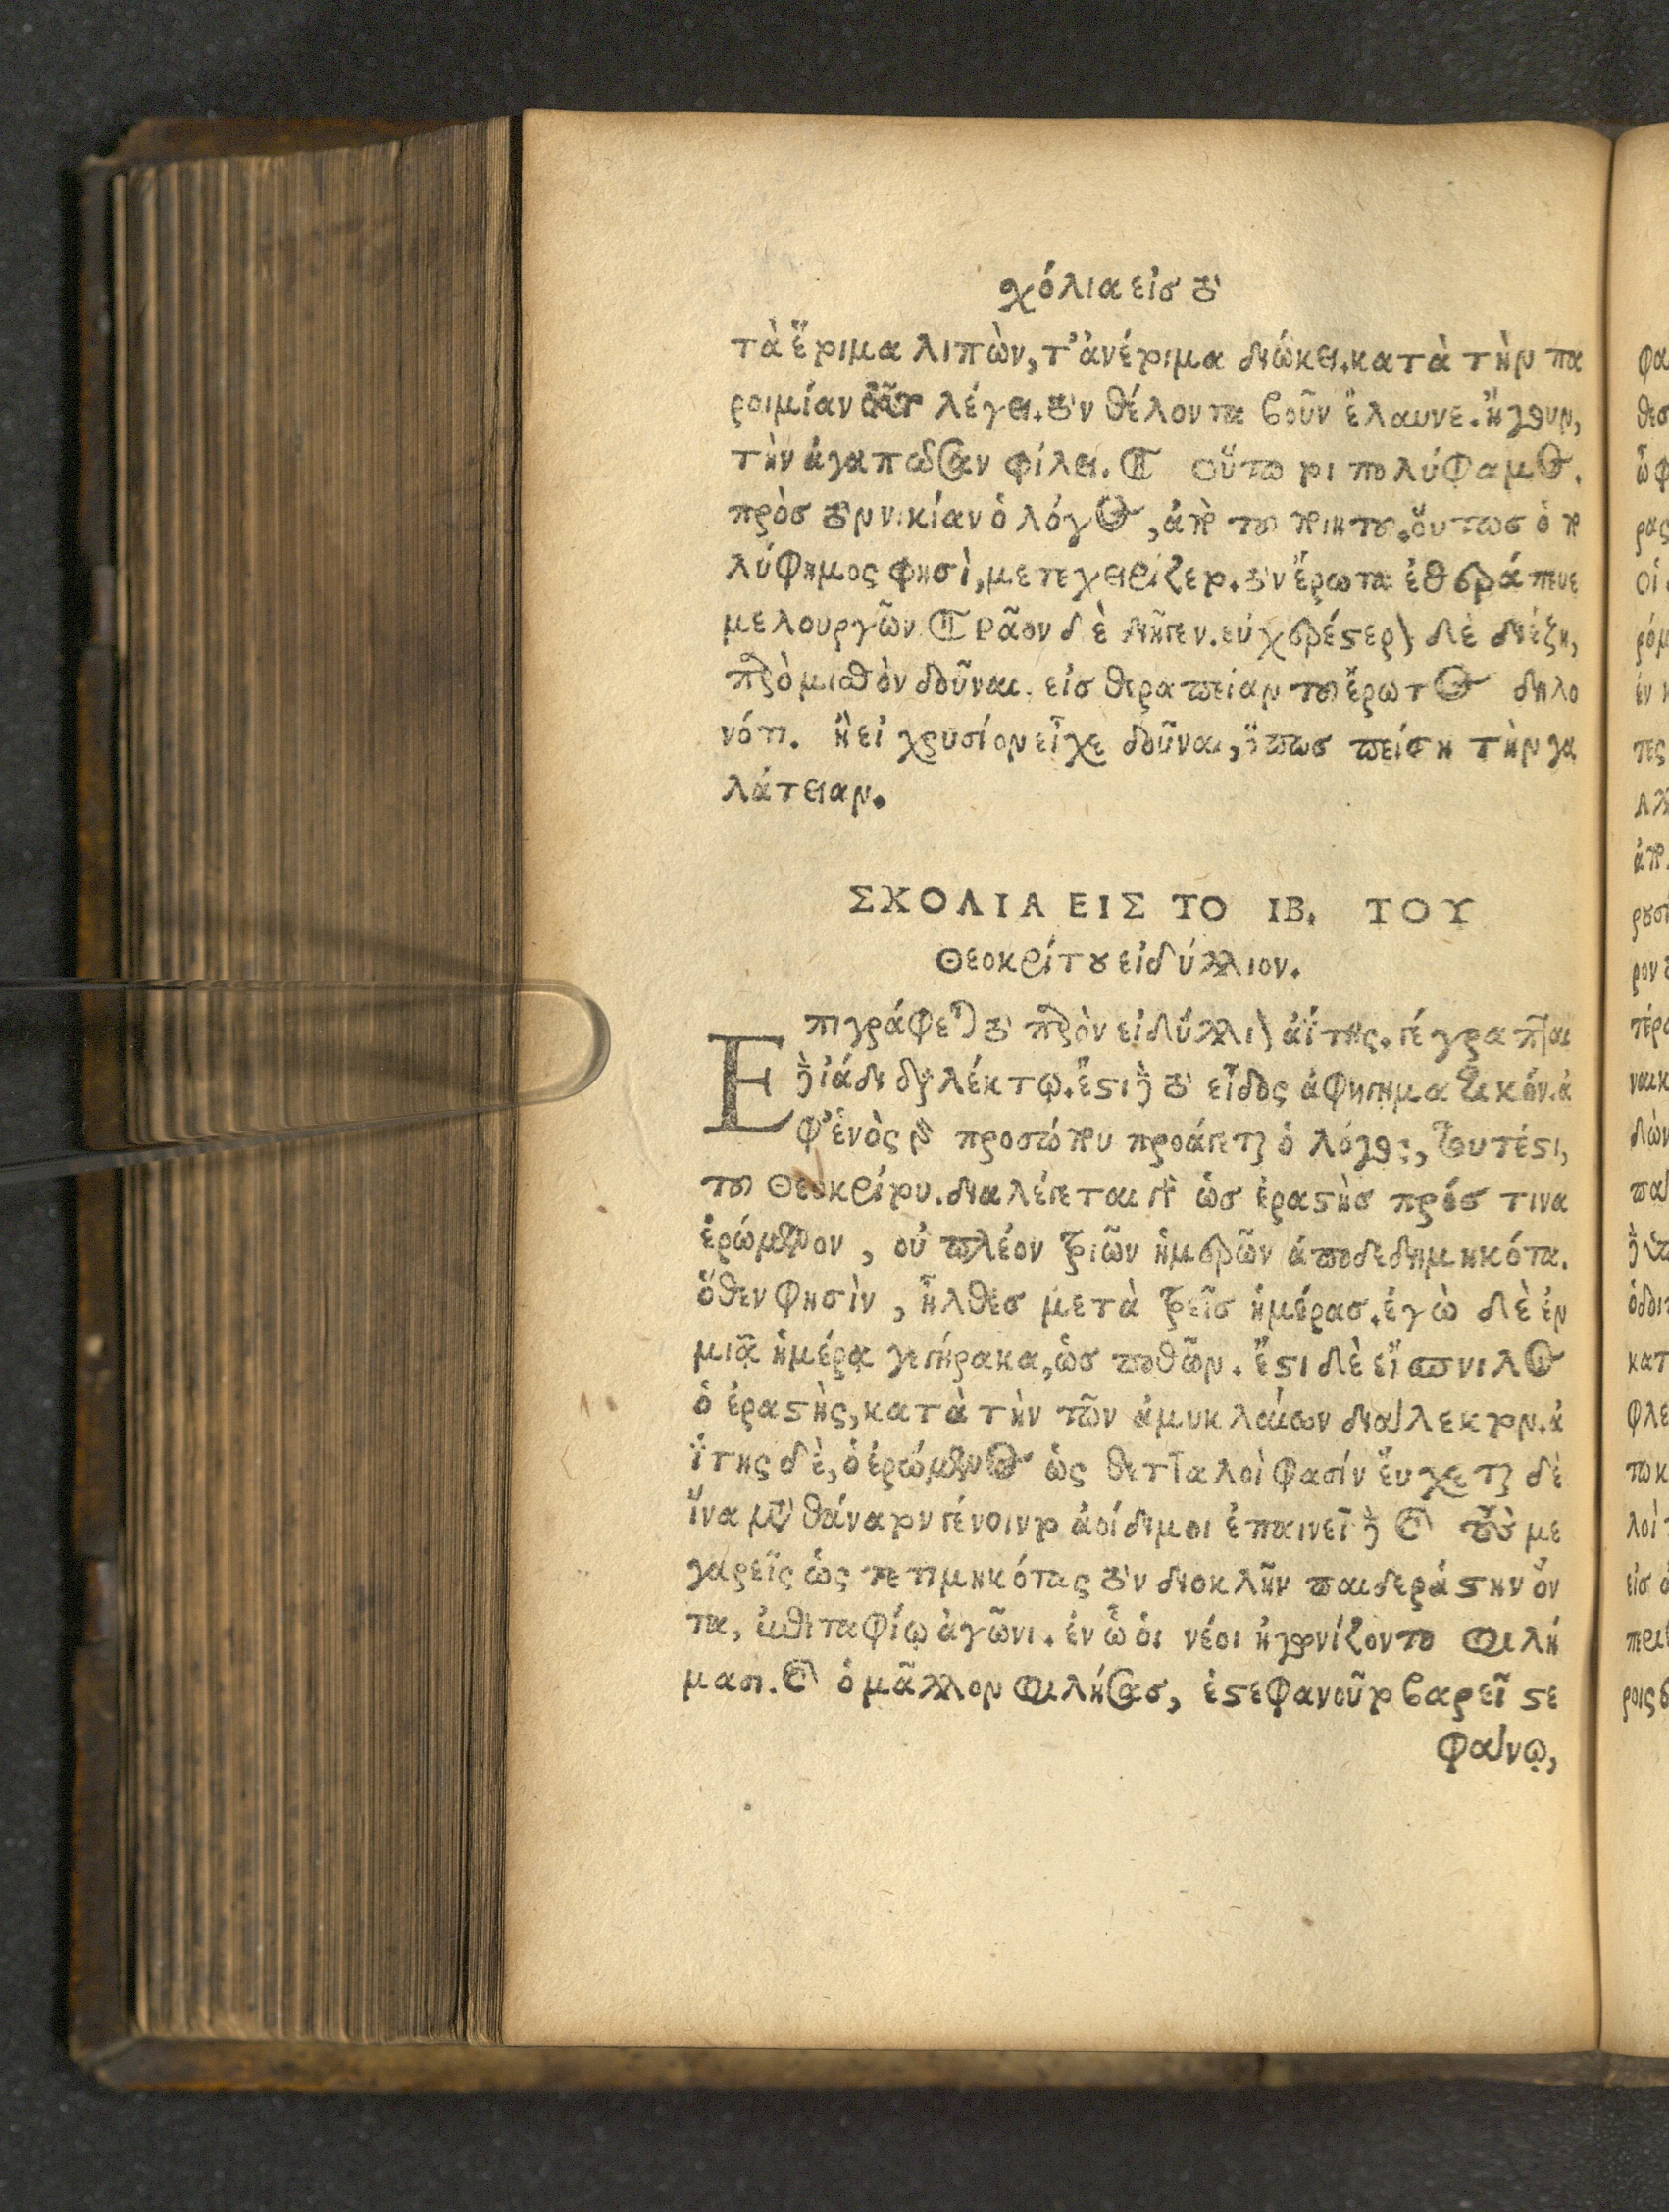 σχόλια εἰσ τὸ
τὰ ἕτοιμα λιπὼν, τ' ἀνέτοιμα διώκει. κατὰ τὴν πα
ροιμίαν λέγει. τὸν θέλοντα βοῦν ἔλαυνε. ἤγουν,
τὴν ἀγαπῶσαν φίλει. ¶ οὕτω τοι πολύφαμος.
πρὸσ τὸν νικίαν ὁ λόγος, ἀπὸ τοῦ ποιητοῦ. οὕτωσ ὁ πο
λύφημος φησὶ, μετεχειρίζετο. τὸν ἔρωτα ἐθεράπευε
μελουργῶν ¶ ρᾶον δὲ διῆγεν. εὐχερέστερον δὲ διέζη,
παρὸ μισθὸν δοῦναι. εἰσ θεραπείαν τοῦ ἔρωτος δηλο
νότι. ἢ εἰ χρυσίον εἶχε δοῦναι, ὅπωσ πείση τὴν γα
λάτειαν.
ΣΧΟΛΙΑ ΕΙΣ ΤΟ ΙΒ. ΤΟΥ
Θεοκρίτου εἰδύλλιον.
Επιγράφεται τὸ παρὸν εἰδύλλιον ἀΐτης. γέγραπται
δὲ ἰάδι διαλέκτῳ. ἔστι δὲ τὸ εἶδος ἀφηγηματικόν. ἀ
φ' ἑνὸς γὰρ προσώπου προάγεται ὁ λόγος, τουτέστι,
τοῦ Θεοκρίτου. διαλέγεται γὰρ ὡσ ἐραστὴσ πρόσ τινα
ἐρώμενον, οὐ πλέον τριῶν ἡμερῶν ἀποδεδημηκότα.
ὅθεν φησὶν, ἦλθεσ μετὰ τρεῖσ ἡμέρασ. ἐγὼ δὲ ἐν
μιᾷ ἡμέρᾳ γεγήρακα, ὡσ ποθῶν. ἔστι δὲ εἴσπνιλος
ὁ ἐραστὴς, κατὰ τὴν τῶν ἀμυκλαίων διάλεκτον. ἀ
ΐτης δὲ, ὁ ἐρώμενος ὡς θετταλοὶ φασίν εὔχεται δὲ
ἵνα μετὰ θάνατον γένοιντο ἀοίδιμοι ἐπαινεῖ δὲ καὶ τοὺσ με
γαρεῖς ὡς τετιμηκότας τὸν διοκλῆν παιδεράστην ὄν
τα, ἐπιταφίῳ ἀγῶνι. ἐν ᾧ οἱ νέοι ἠγωνίζοντο φιλή
μασι. καὶ ὁ μᾶλλον φιλήσασ, ἐστεφανοῦτο βαρεῖ στε
φάνῳ,